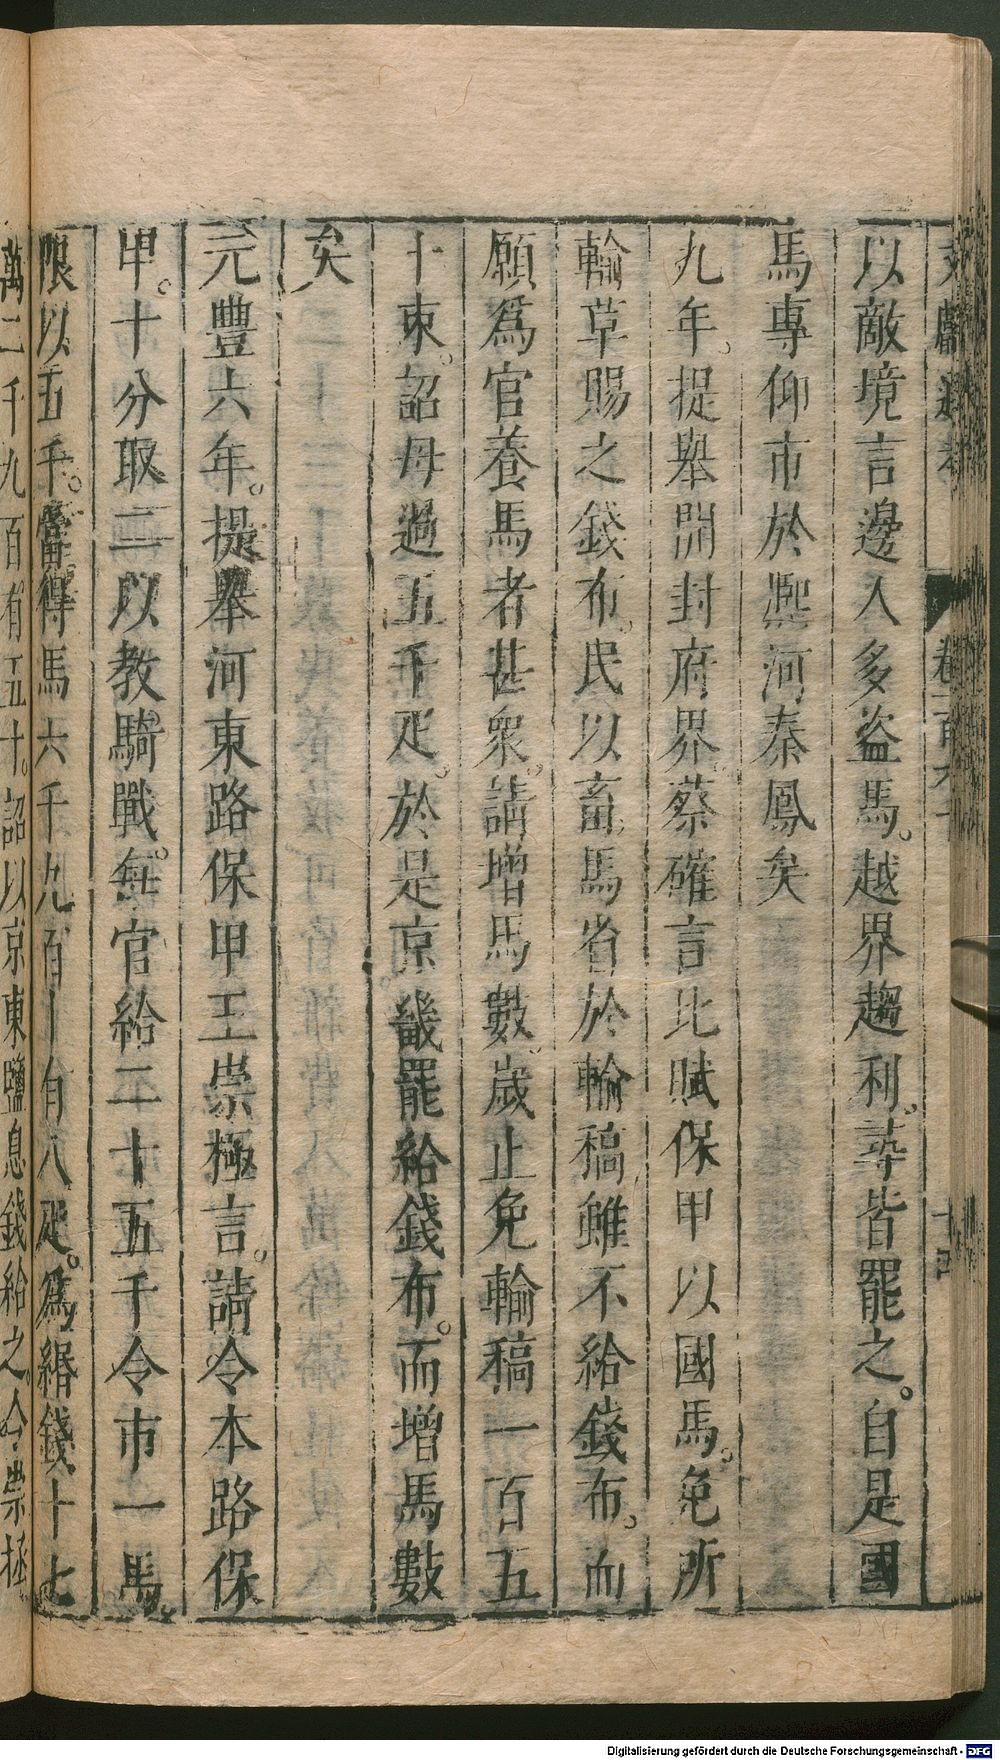 文獻通考 卷一百六十
以敵境言邊人多盗馬。越界趨利。䓁皆罷之。自是國
馬專仰市於熙河秦鳳矣
九年。提舉開封府界。蔡確言比賦保甲以國馬。免所
輸草賜之錢布。民以畜馬省於輸稿雖不給錢布。而
願爲官養馬者甚衆。請增馬數。歲止免輸稿一百五
十束。詔毋過五千疋。於是京畿罷給錢布。而增馬數
矣
元豐六年。提舉河東路保甲王崇極言。請令本路保
甲。十分取二以教騎戰。每官給二十五千令市一馬。
限以五千。當得馬六千九百十有八疋。爲緡錢十七
萬二千九百有五十。詔以京東鹽息錢給之。令崇拯。
Digitalisierung gefördert durch die Deutsche Forschungsgemeinschaft - DFG